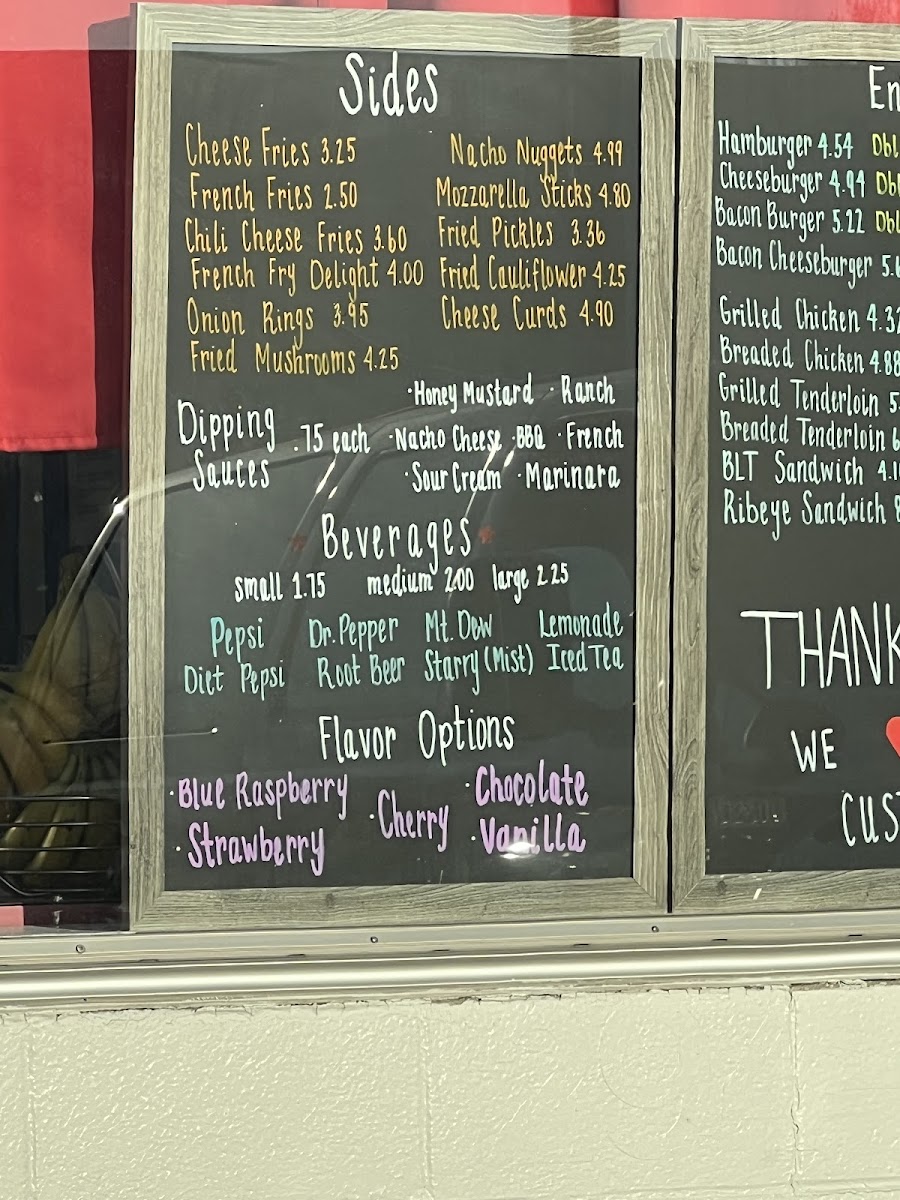 Sides
Cheese Fries 3.25
French Fries 2.50
Chili Cheese Fries 3.60
French Fry Delight 4.00
Onion Rings 3.95
Fried Mushrooms 4.25
Nacho Nuggets 4.99
Mozzarella Sticks 4.80
Fried Pickles 3.36
Fried Cauliflower 4.25
Cheese Curds 4.90
Dipping
Sauces
.75 each
·Honey Mustard · Ranch
·Nacho Cheese ·BBQ ·French
·Sour Cream ·Marinara
Beverages
small 1.75 medium 2.00 large 2.25
Pepsi Dr. Pepper Mt. Dew Lemonade
Diet Pepsi Root Beer Starry (Mist) Iced Tea
Flavor Options
·Blue Raspberry
·Strawberry
·Cherry
·Chocolate
·Vanilla
Hamburger 4.54
Cheeseburger 4.94
Bacon Burger 5.22
Bacon Cheeseburger
Grilled Chicken
Breaded Chicken 4.88
Grilled Tenderloin
Breaded Tenderloin
BLT Sandwich
Ribeye Sandwich
THANK
WE